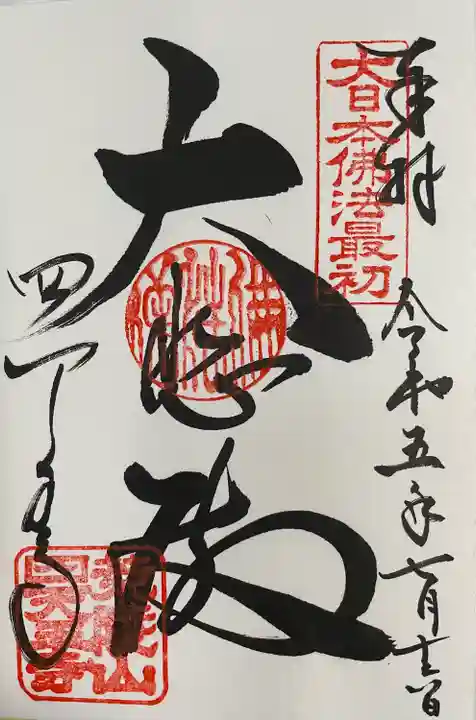 奉拝
大日本佛法最初
令和五年七月
大悲殿
四天王寺
荒陵山
四天王寺